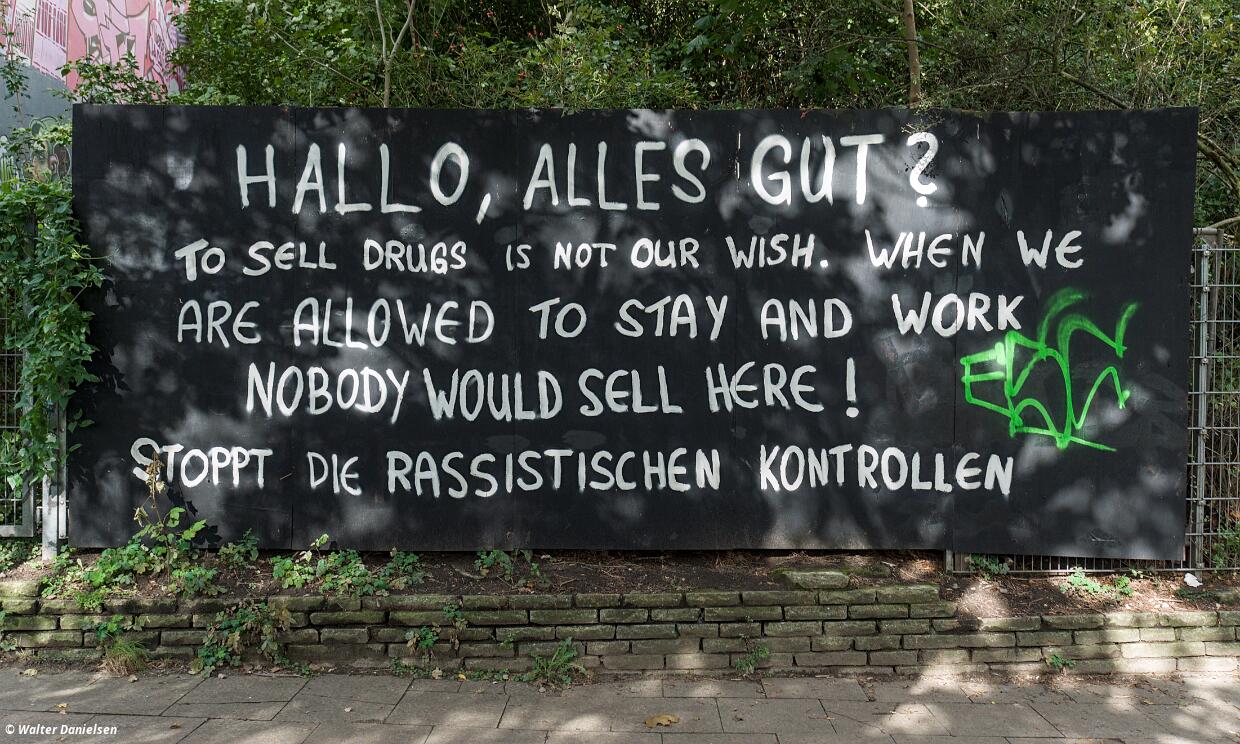 HALLO, ALLES GUT?
TO SELL DRUGS IS NOT OUR WISH. WHEN WE
ARE ALLOWED TO STAY AND WORK
NOBODY WOULD SELL HERE!
STOPPT DIE RASSISTISCHEN KONTROLLEN
© Walter Danielsen